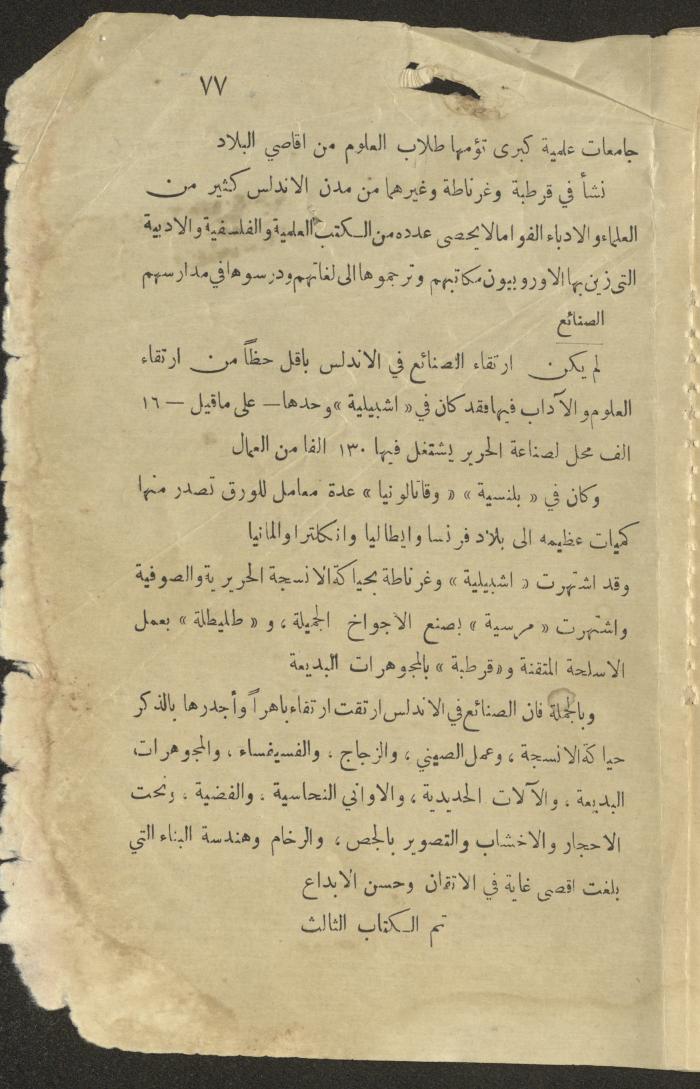 ٧٧
جامعات علمية كبرى تؤمها طلاب العلوم من اقاصي البلاد
نشأ في قرطبة وغرناطة وغيرهما من مدن الاندلس كثير من
العلماء والادباء الفوا مالا يحصى عدده من الكتب العلمية والفلسفية والادبية
التى زين بها الاوروبيون مكاتبهم وترجموها الى لغاتهم ودرسوها في مدارسهم
الصنائع
لم يكن ارتقاء الصنائع في الاندلس باقل حظاً من ارتقاء
العلوم والآداب فيها فقد كان في « اشبيلية » وحدها — على ماقيل — ١٦
الف محل لصناعة الحرير يشتغل فيها ١٣٠ الفا من العمال
وكان في « بلنسية » « وقاتالونيا » عدة معامل للورق تصدر منها
كميات عظيمه الى بلاد فرنسا وايطاليا وانكلترا والمانيا
وقد اشتهرت « اشبيلية » وغرناطة بحياكة الانسجة الحريرية والصوفية
واشتهرت « مرسية » بصنع الأجواخ الجميلة ، و « طليطلة » بعمل
الاسلحة المتقنة و« قرطبة » بالمجوهرات البديعة
وبالجملة فان الصنائع في الاندلس ارتقت ارتقاء باهراً وأجدرها بالذكر
حياكة الانسجة ، وعمل الصيني ، والزجاج ، والفسيفساء ، والمجوهرات
البديعة ، والآلات الحديدية ، والاواني النحاسية ، والفضية ، ونحت
الاحجار والاخشاب والتصوير بالجص ، والرخام وهندسة البناء التي
بلغت اقصى غاية في الاتقان وحسن الابداع
تم الكتاب الثالث